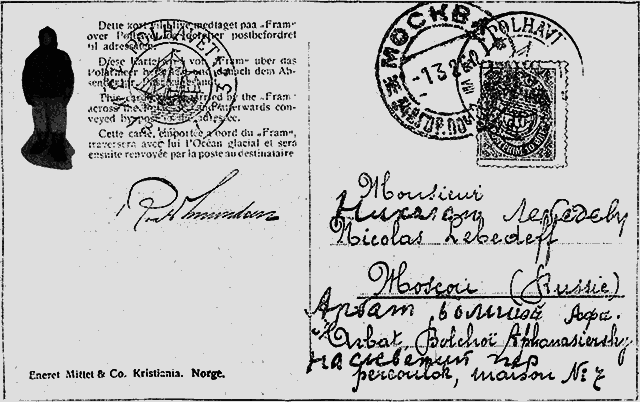 Dette kort vil blive medtaget paa „Fram“
over Polhavet og derefter postbefordret
til adressaten.
Diese Karte wird von „Fram“ über das
Polarmeer
This card carried by the „Fram“
across the and afterwards con-
veyed by post to
Cette carte, emportée a bord du „Fram“,
traversera avec lui l'Océan glacial et sera
ensuite renvoyée par la poste au destinataire
Roald Amundsen
Eneret Mittet & Co. Kristiania. Norge.
МОСКВА
POLHAVET
POLHAV
Monsieur
Николаю Лебедеву
Nicolas Lebedeff
Moscou (Russie)
Арбат, Большой Афа-
Arbat, Bolchoï Aphanasiersky
пер
percoulok, maison № 7